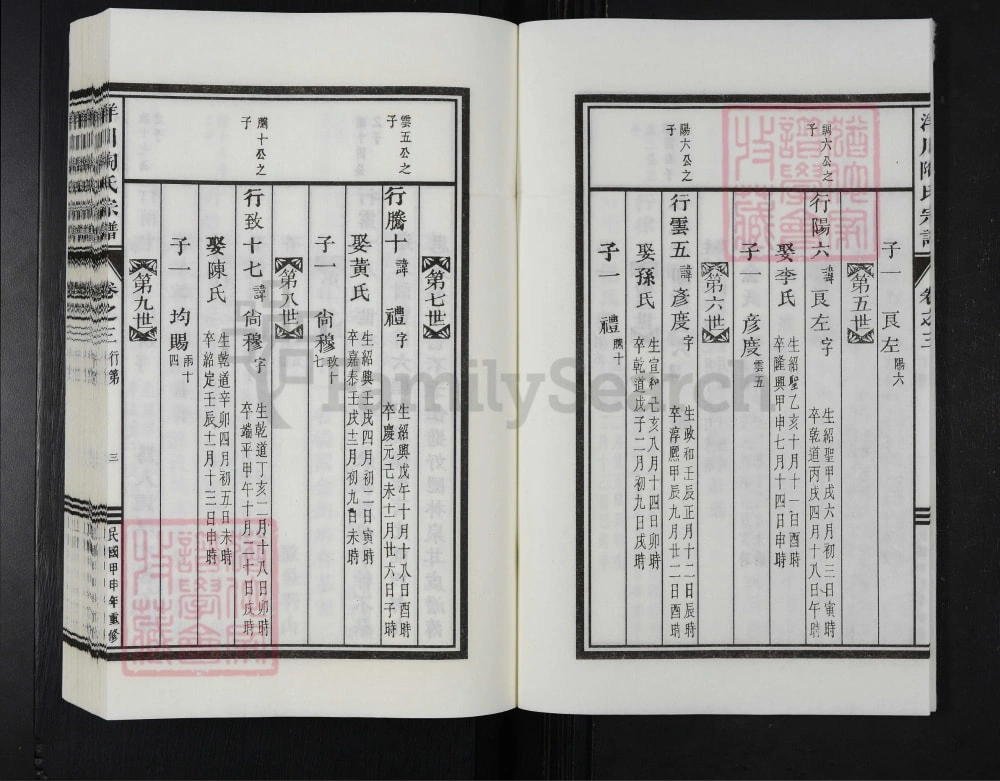 子一 良左 陽六
第五世
調六公之子
行陽六 諱良左 字
生紹聖甲戌六月初三日寅時
卒乾道丙戌四月十八日午時
娶李氏
生紹聖乙亥十月十一日酉時
卒隆興甲申七月十四日申時
子一 彦度 雲五
第六世
陽六公之子
行雲五 諱彦度 字
生政和壬辰正月十二日辰時
卒淳熈甲辰九月廿二日酉時
娶孫氏
生宣和乙亥八月十四日卯時
卒乾道戊子二月初九日戌時
子一 禮 騰十
第七世
雲五公之子
行騰十 諱禮 字
生紹興戊午十月十八日酉時
卒慶元己未十一月廿六日子時
娶黃氏
生紹興壬戌四月初二日寅時
卒嘉泰壬戌十二月初九日未時
子一 尙穆 致十七
第八世
騰十公之子
行致十七 諱尙穆 字
生乾道丁亥二月十八日卯時
卒端平甲午十月二十日戌時
娶陳氏
生乾道辛卯四月初五日未時
卒紹定壬辰十一月十三日申時
子一 均賜 兩十四
第九世
洋川陶氏宗譜 卷之三 行第 三 民國甲申年重修
FamilySearch